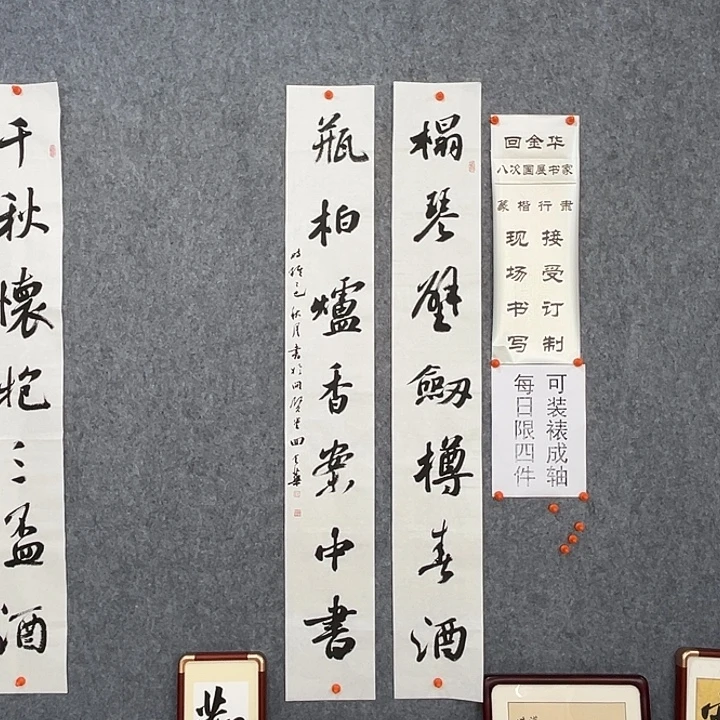 榻琴壁劍樽春酒
瓶柏爐香案中書
時維乙巳秋月書於問賢堂回金華
千秋懷抱三盃酒
回金华
八次国展书家
篆楷行隶
现场书写
接受订制
可装裱成轴
每日限四件